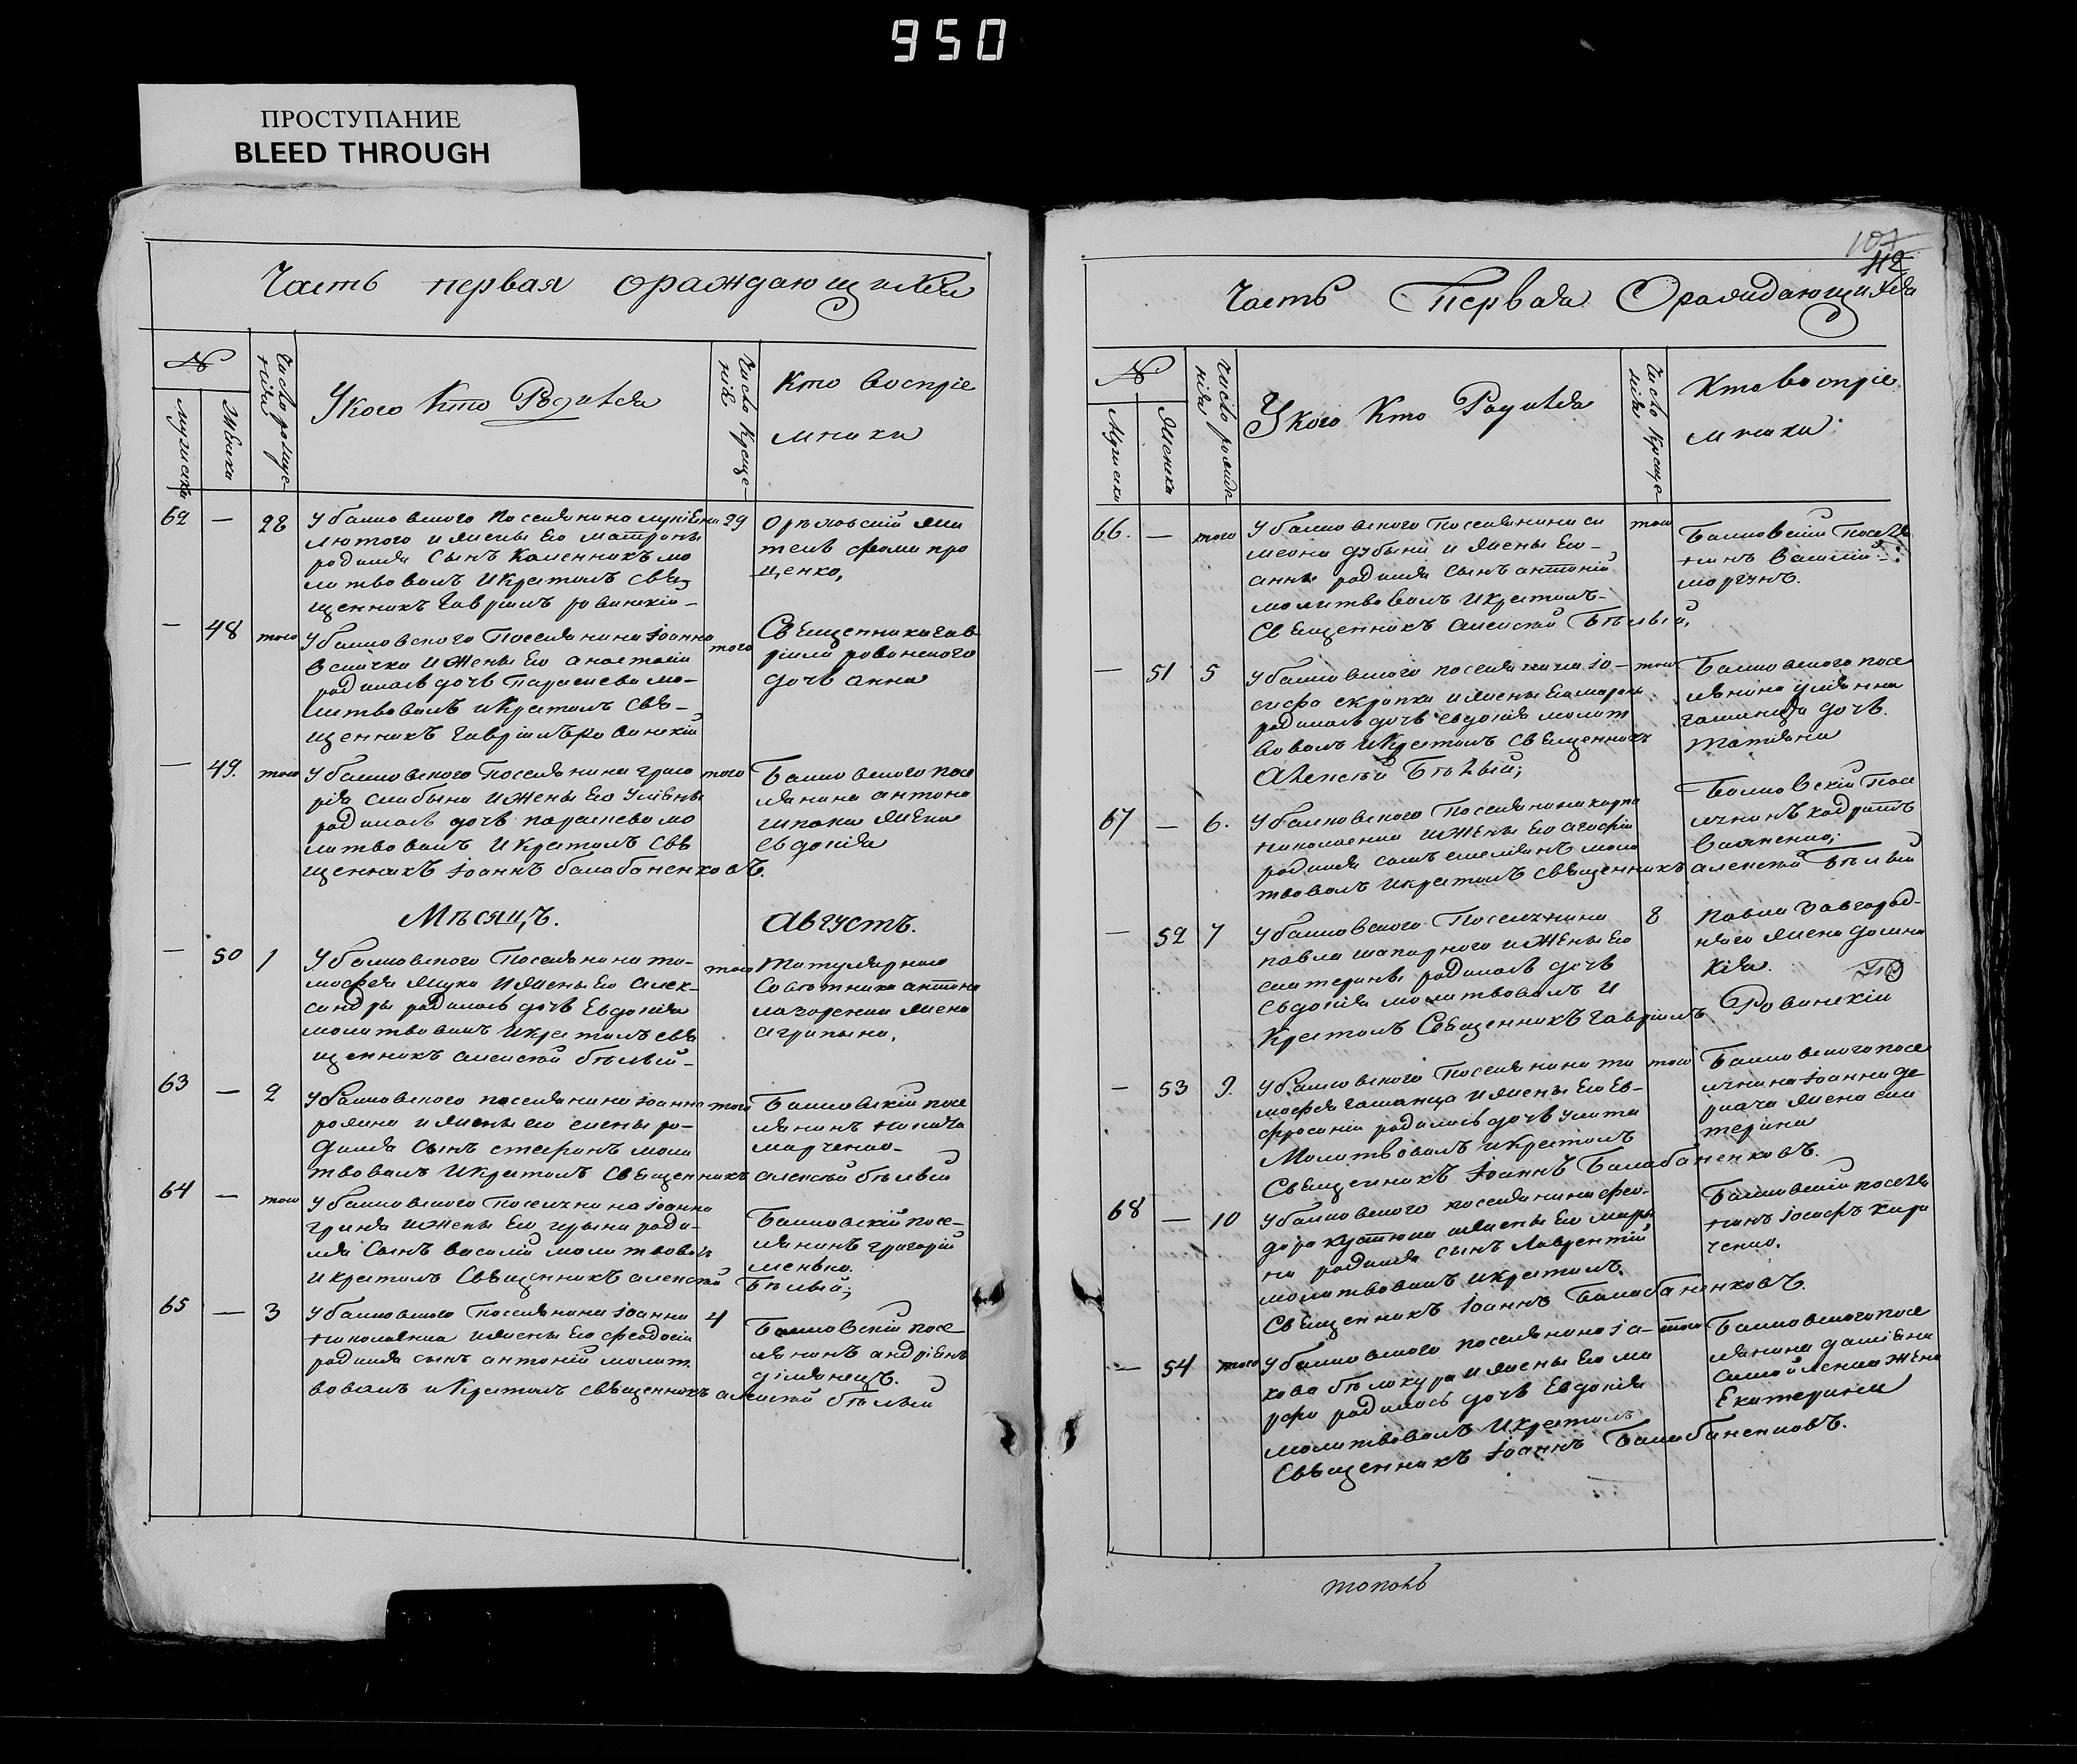 950
ПРОСТУПАНИЕ
BLEED THROUGH
Часть первая ораждающихся
№
Мужеска
Женска
Число рожде-
нія
У кого Кто Родился
Число Креще-
нія
Кто воспріе
мники
62 — 28
У балковского поселянина
лютого и жены его матроны 29
родился сынъ Каленникъ мо
литвовалъ и Крестилъ свя
щенникъ Гавріилъ
жи
тель фома про
ценко,
— 48 того
У балковского Поселянина Іоанна
и жены его анастасіи того
родилась дочь Параскева мо-
литвовалъ и Крестилъ свя-
щенникъ Гавріилъ Ровинскій
Священника гав
ріила ровинского
дочь анна
— 49. того
У балковского Поселянина григо
рія и жены его Уліяны того
родилась дочь параскева мо
литвовалъ и Крестилъ свя
щенникъ Іоаннъ балабаненковъ.
Балковского посе
лянина антона
жена
евдокія
Мѣсяцъ. Августъ.
— 50 1
У балковского Поселянина ти-
мофея жука и жены его алек- того
сандры родилась дочь Евдокія
молитвовалъ и Крестилъ свя
щенникъ алексій бѣлый
Титулярного
Совѣтника антона
жена
агрипина,
63 — 2
У балковского поселянина Іоанна того
и жены его елены ро-
дился сынъ стефанъ моли
твовалъ и Крестилъ Священникъ алексій бѣлый
Балковскій посе
лянинъ
марченко
64 — того
У балковского Поселянина Іоанна
и жены его ирины роди-
лся сынъ василій молитвовалъ
и Крестилъ Священникъ алексій Бѣлый;
Балковскій посе-
лянинъ григорій
65 — 3
У балковского Поселянина Іоанна 4
николаенка и жены его феодосіи
родился сынъ антоній молит
вовалъ и Крестилъ священникъ алексій бѣлый
Балковскій посе
лянинъ андріянъ
107
112
Часть Первая Ораждающихся
№
Мужеска
Женска
Число рожде
нія
У кого Кто Родился
Число Креще
нія
Кто воспріе
мники
66. — того
У балковского Поселянина си того
меона дубины и жены его
анны родился сынъ антоній
молитвовалъ и крестилъ
Священникъ алексій Бѣлый,
Балковскій Поселя
нинъ Василій
— 51 5
У балковского поселянина Іо- того
сифа скрипки и жены его марины
родилась дочь евдокія молит
вовалъ и Крестилъ Священникъ
Алексій Бѣлый;
Балковского посе
лянина
дочь
татіяна
67 — 6.
У балковского Поселянина карпа
николаенка и жены его агафіи
родился сынъ емеліянъ моли
твовалъ и крестилъ священникъ алексій Бѣлый
Балковскій Посе
лянинъ кодратъ
— 52 7
У балковского Поселянина 8
павла и жены его
екатерины родилась дочь
Евдокія молитвовалъ и
Крестилъ Священникъ Гавріилъ Ровинскій
павла завгород-
няго жена домни
кія.
— 53 9.
У балковского Поселянина ти того
мофея гаманца и жены его Ев-
фросиніи родилась дочь улита
Молитвовалъ и Крестилъ
Священникъ Іоаннъ Балабаненковъ.
Балковского посе
лянина Іоанна де
ркача жена ека
терина
68 — 10
У балковского поселянина фео-
дора и жены его мари
ны родился сынъ Лаврентій
молитвовалъ и крестилъ
Священникъ Іоаннъ Балабаненковъ.
Балковскій поселя
нинъ Іосифъ кири
ченко.
— 54 того
У балковского поселянина Іа- того
кова бѣлокура и жены его ма
рфы родилась дочь Евдокія
молитвовалъ и Крестилъ
Священникъ Іоаннъ Балабаненковъ.
Балковского посе
лянина даміяна
самойленка жена
Екатерина